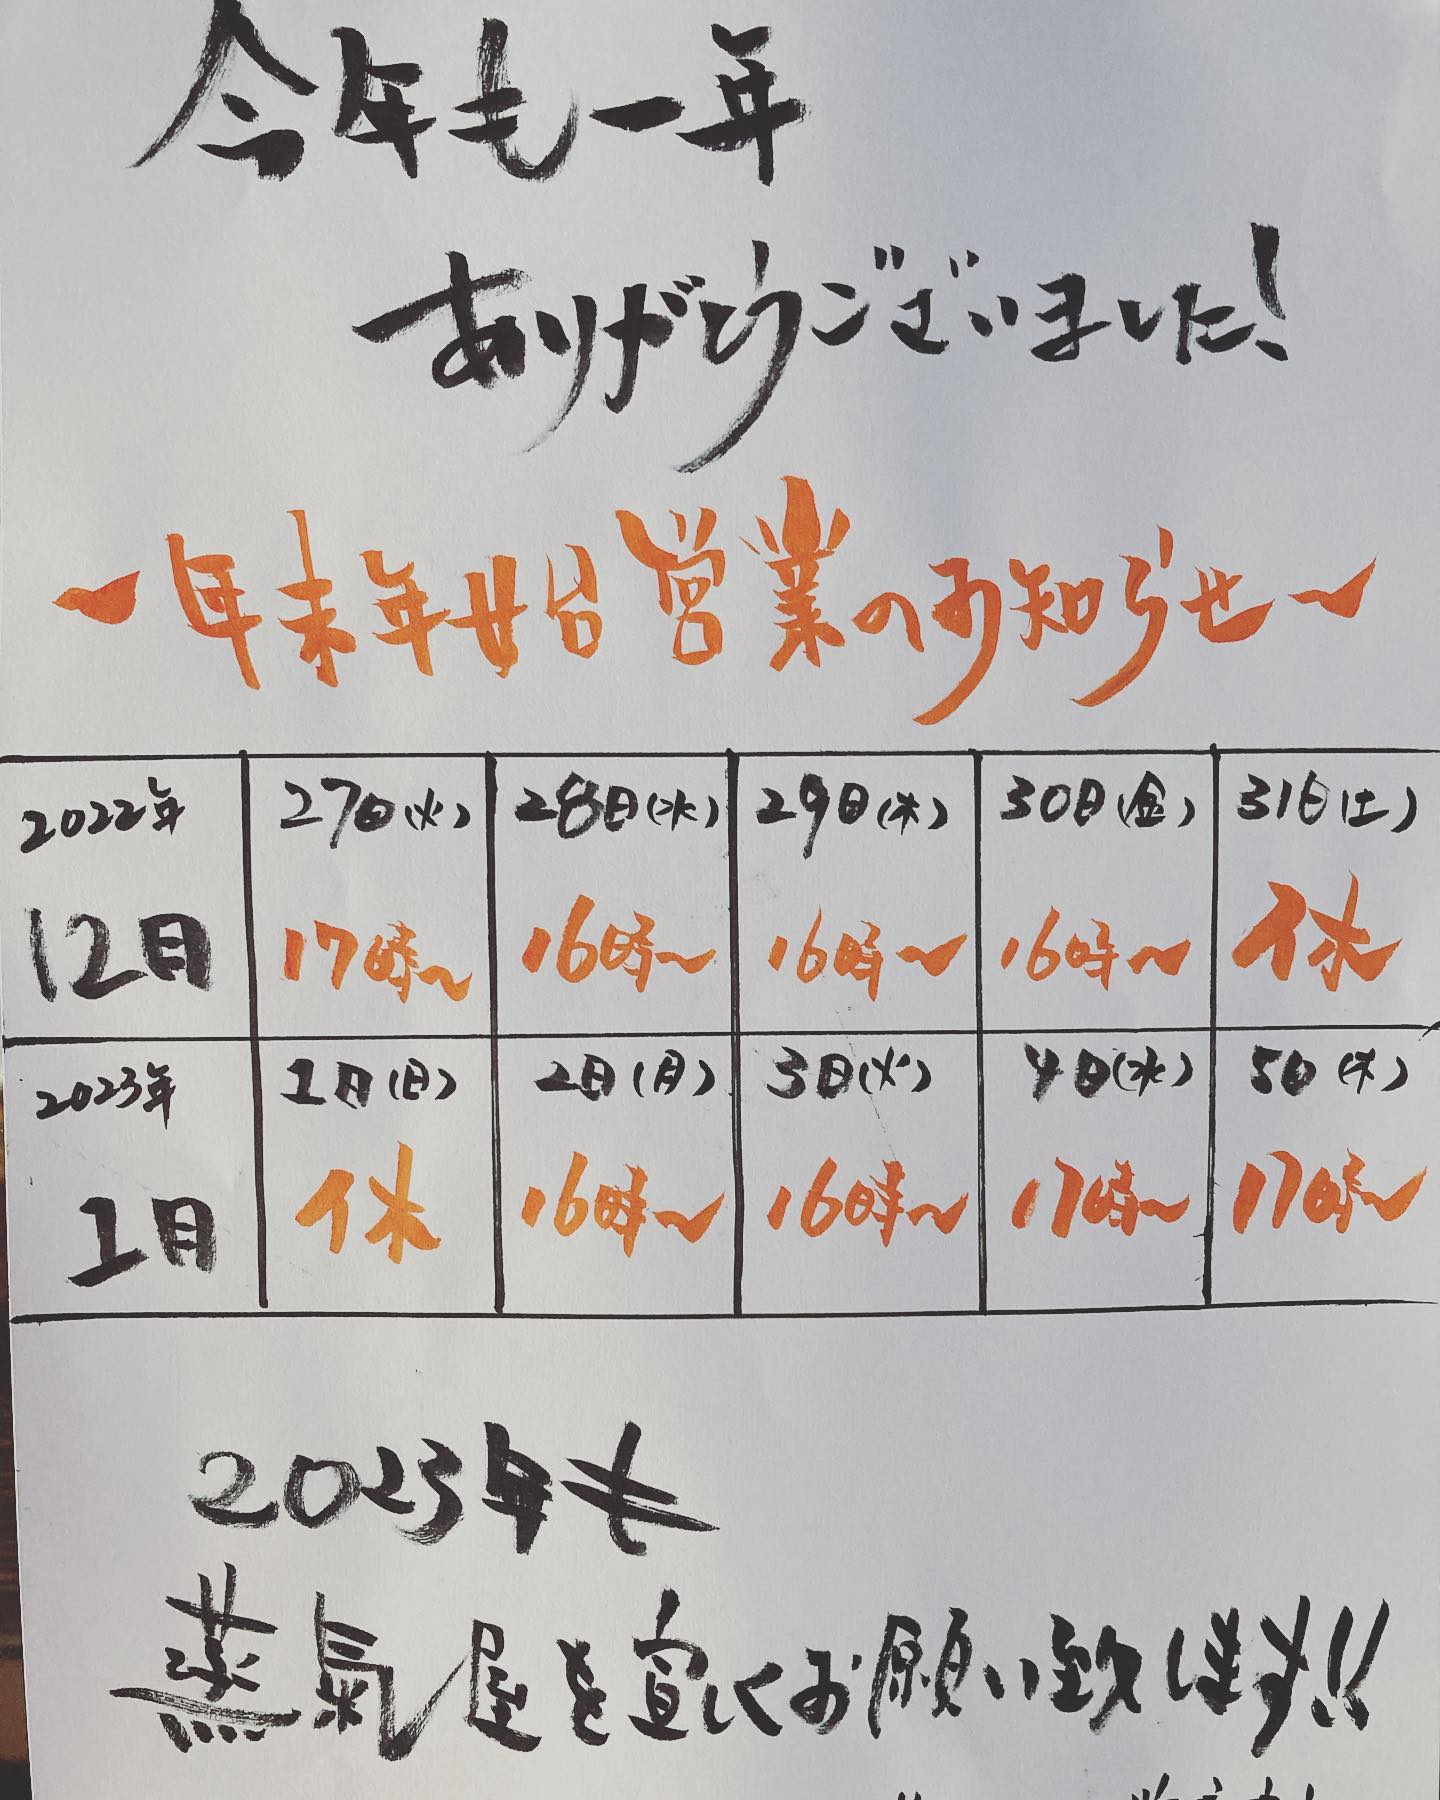 今年も一年
ありがとうございました!
~年末年始営業のお知らせ~
2022年 27日(火) 28日(水) 29日(木) 30日(金) 31日(土)
12月 17時~ 16時~ 16時~ 16時~ 休
2023年 1日(日) 2日(月) 3日(火) 4日(水) 5日(木)
1月 休 16時~ 16時~ 17時~ 17時~
2023年も
蒸氣屋を宜しくお願い致します!!